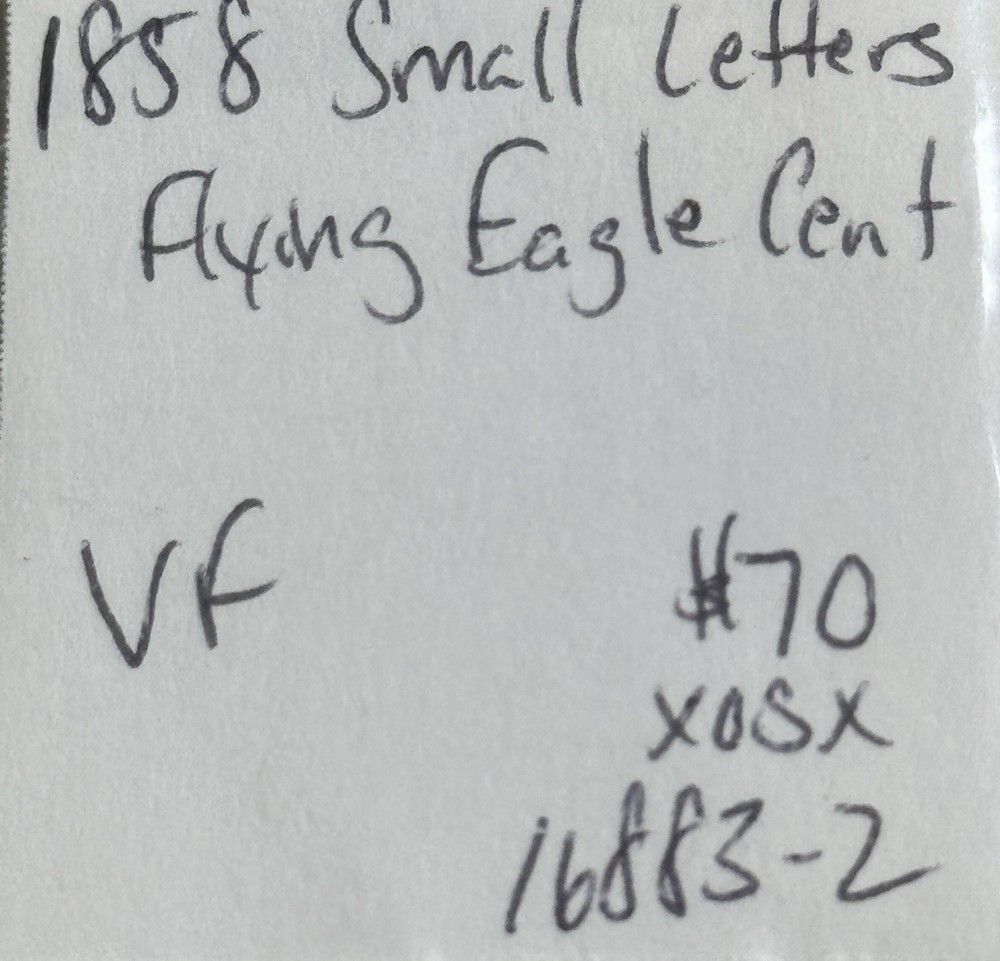 1858 Small Letters
Flying Eagle Cent
VF
$70
XOSX
16883-2